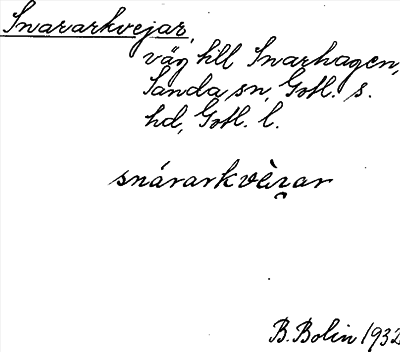 Snararkvejar,
väg till Snarhagen,
Sanda sn, Gotl. s.
hd, Gotl. l.
snárarkvèɪ̯ar
B. Bolin 1932